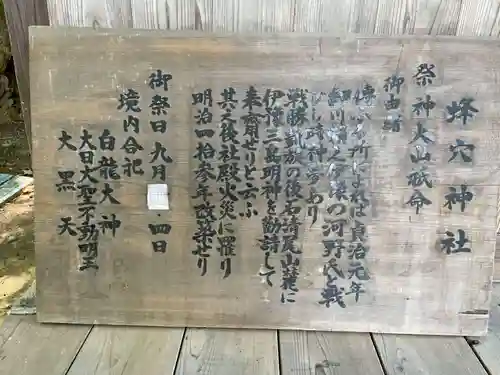 蜂穴神社
祭神大山祇命
御由緒
傳ふ所によれば貞治元年
細川頼之伊豫の河野氏と戦
ひし時神容あり
戦勝凱旋の後石清尾山麓に
伊豫三島明神を勧請して
奉齋せりと云ふ
其之後社殿火災に罹り
明治四拾参年改築せり
御祭日九月 四日
境内合祀
白龍大神
大日大聖不動明王
大黒天